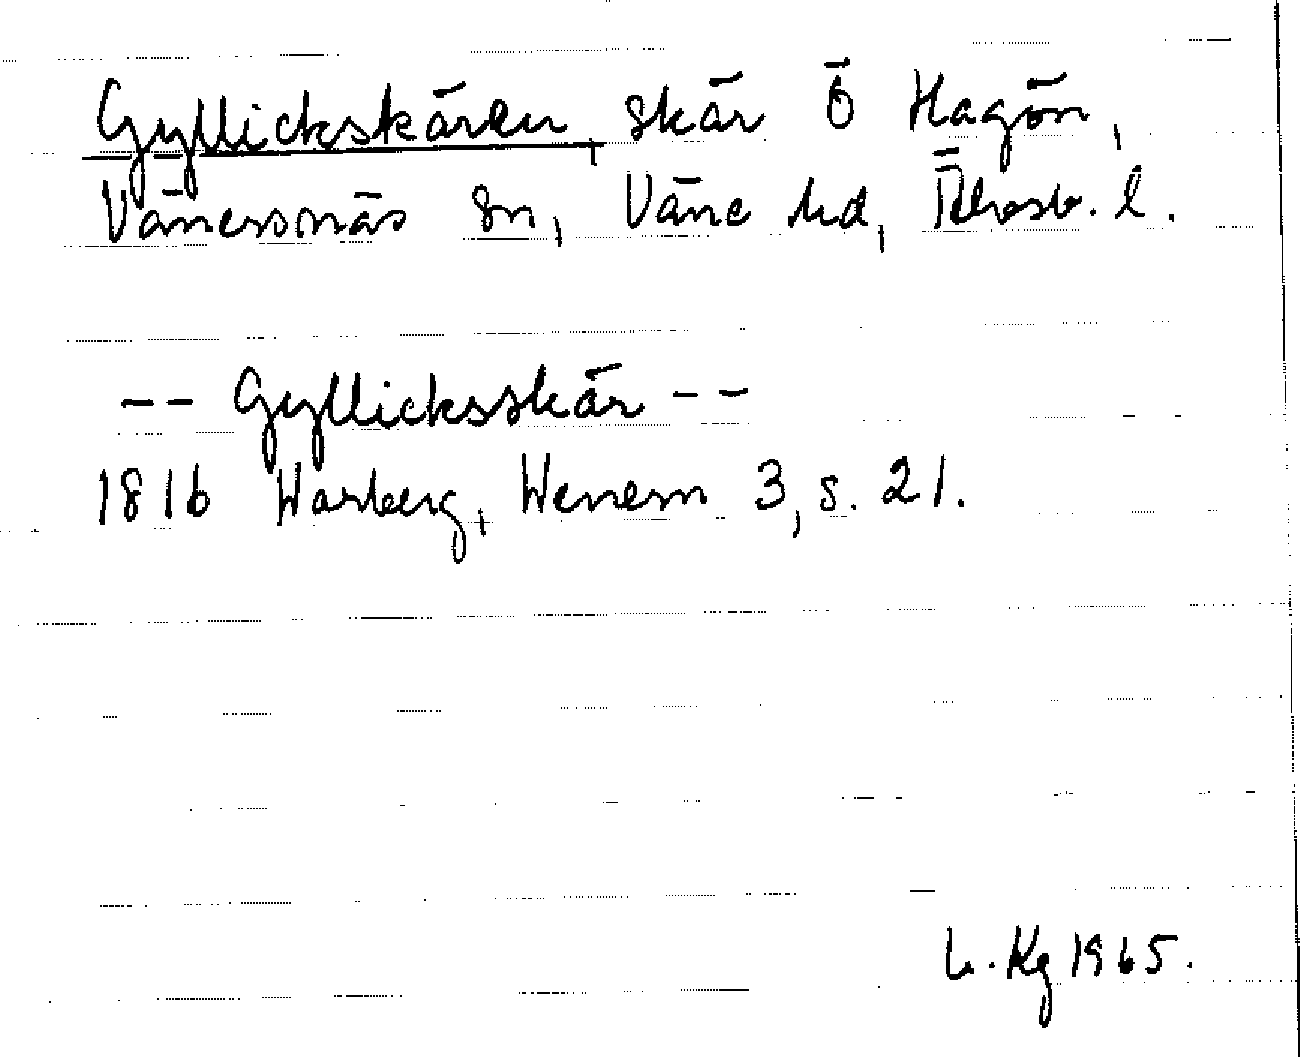 Gyllickskären, skär Ö Hagön,
Vänersnäs sn, Väne hd, Älvsb. l.
-- Gyllicksskär --
1816 Warberg, Wenern 3, s. 21.
L. Kg 1965.